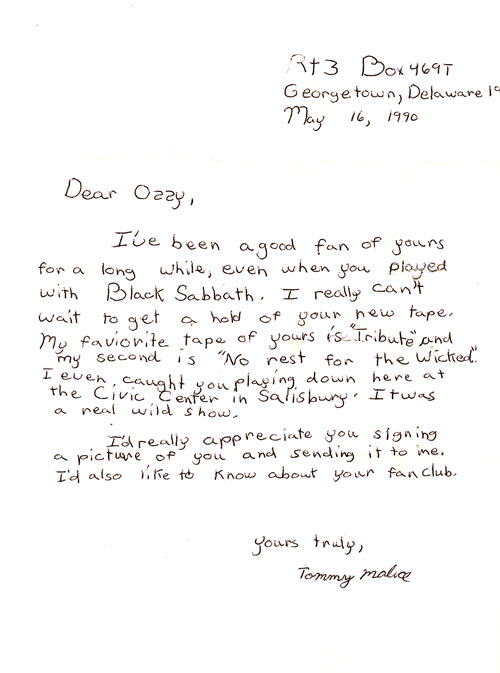 Rt3 Box 469T
Georgetown, Delaware 19
May 16, 1990
Dear Ozzy,
I've been a good fan of yours
for a long while, even when you played
with Black Sabbath. I really can't
wait to get a hold of your new tape.
My faviorite tape of yours is "Tribute" and
my second is "No rest for the Wicked".
I even caught you playing down here at
the Civic Center in Salisbury. It was
a real wild show.
I'd really appreciate you signing
a picture of you and sending it to me.
I'd also like to know about your fanclub.
yours truly,
Tommy